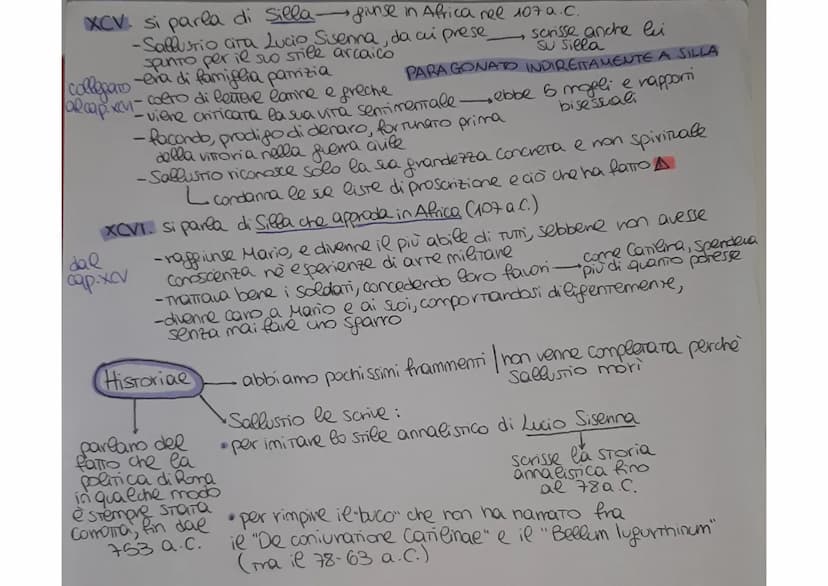 XCV. si parla di Silla → giunse in Africa nel 107 a.C.
- Sallustio cita Lucio Sisenna, da cui prese → scrisse anche lui
spunto per il suo stile arcaico su silla
- era di famiglia patrizia
PARAGONATO INDIRETTAMENTE A SILLA
collegato
al cap. XCVI
- colto di lettere latine e greche
- viene criticata la sua vita sentimentale → ebbe 5 mogli e rapporti
bisessuali
- facondo, prodigo di denaro, fortunato prima
della vittoria nella guerra civile
- Sallustio riconosce solo la sua grandezza concreta e non spirituale
condanna le sue liste di proscrizione e ciò che ha fatto
XCVI. si parla di Silla che approda in Africa (107 a.C.)
dal
cap. XCV
- raggiunse Mario, e divenne il più abile di tutti, sebbene non avesse
conoscenza nè esperienze di arte militare
- Trattava bene i soldati, concedendo loro favori → come Catilina, spendeva
più di quanto potesse
- divenne caro a Mario e ai suoi, comportandosi diligentemente,
senza mai fare uno sgarro
Historiae → abbiamo pochissimi frammenti / non venne completata perchè
sallustio morì
Sallustio le scrive:
• per imitare lo stile annalistico di Lucio Sisenna
scrisse la storia
annalistica fino
al 78 a.C.
parlano del
fatto che la
politica di Roma
in qualche modo
è sempre stata
corrotta, fin dal
753 a.C.
• per rimpire il "buco" che non ha narrato fra
il "De coniuratione Catilinae" e il "Bellum Iugurthinum"
(tra il 78-63 a.C.)